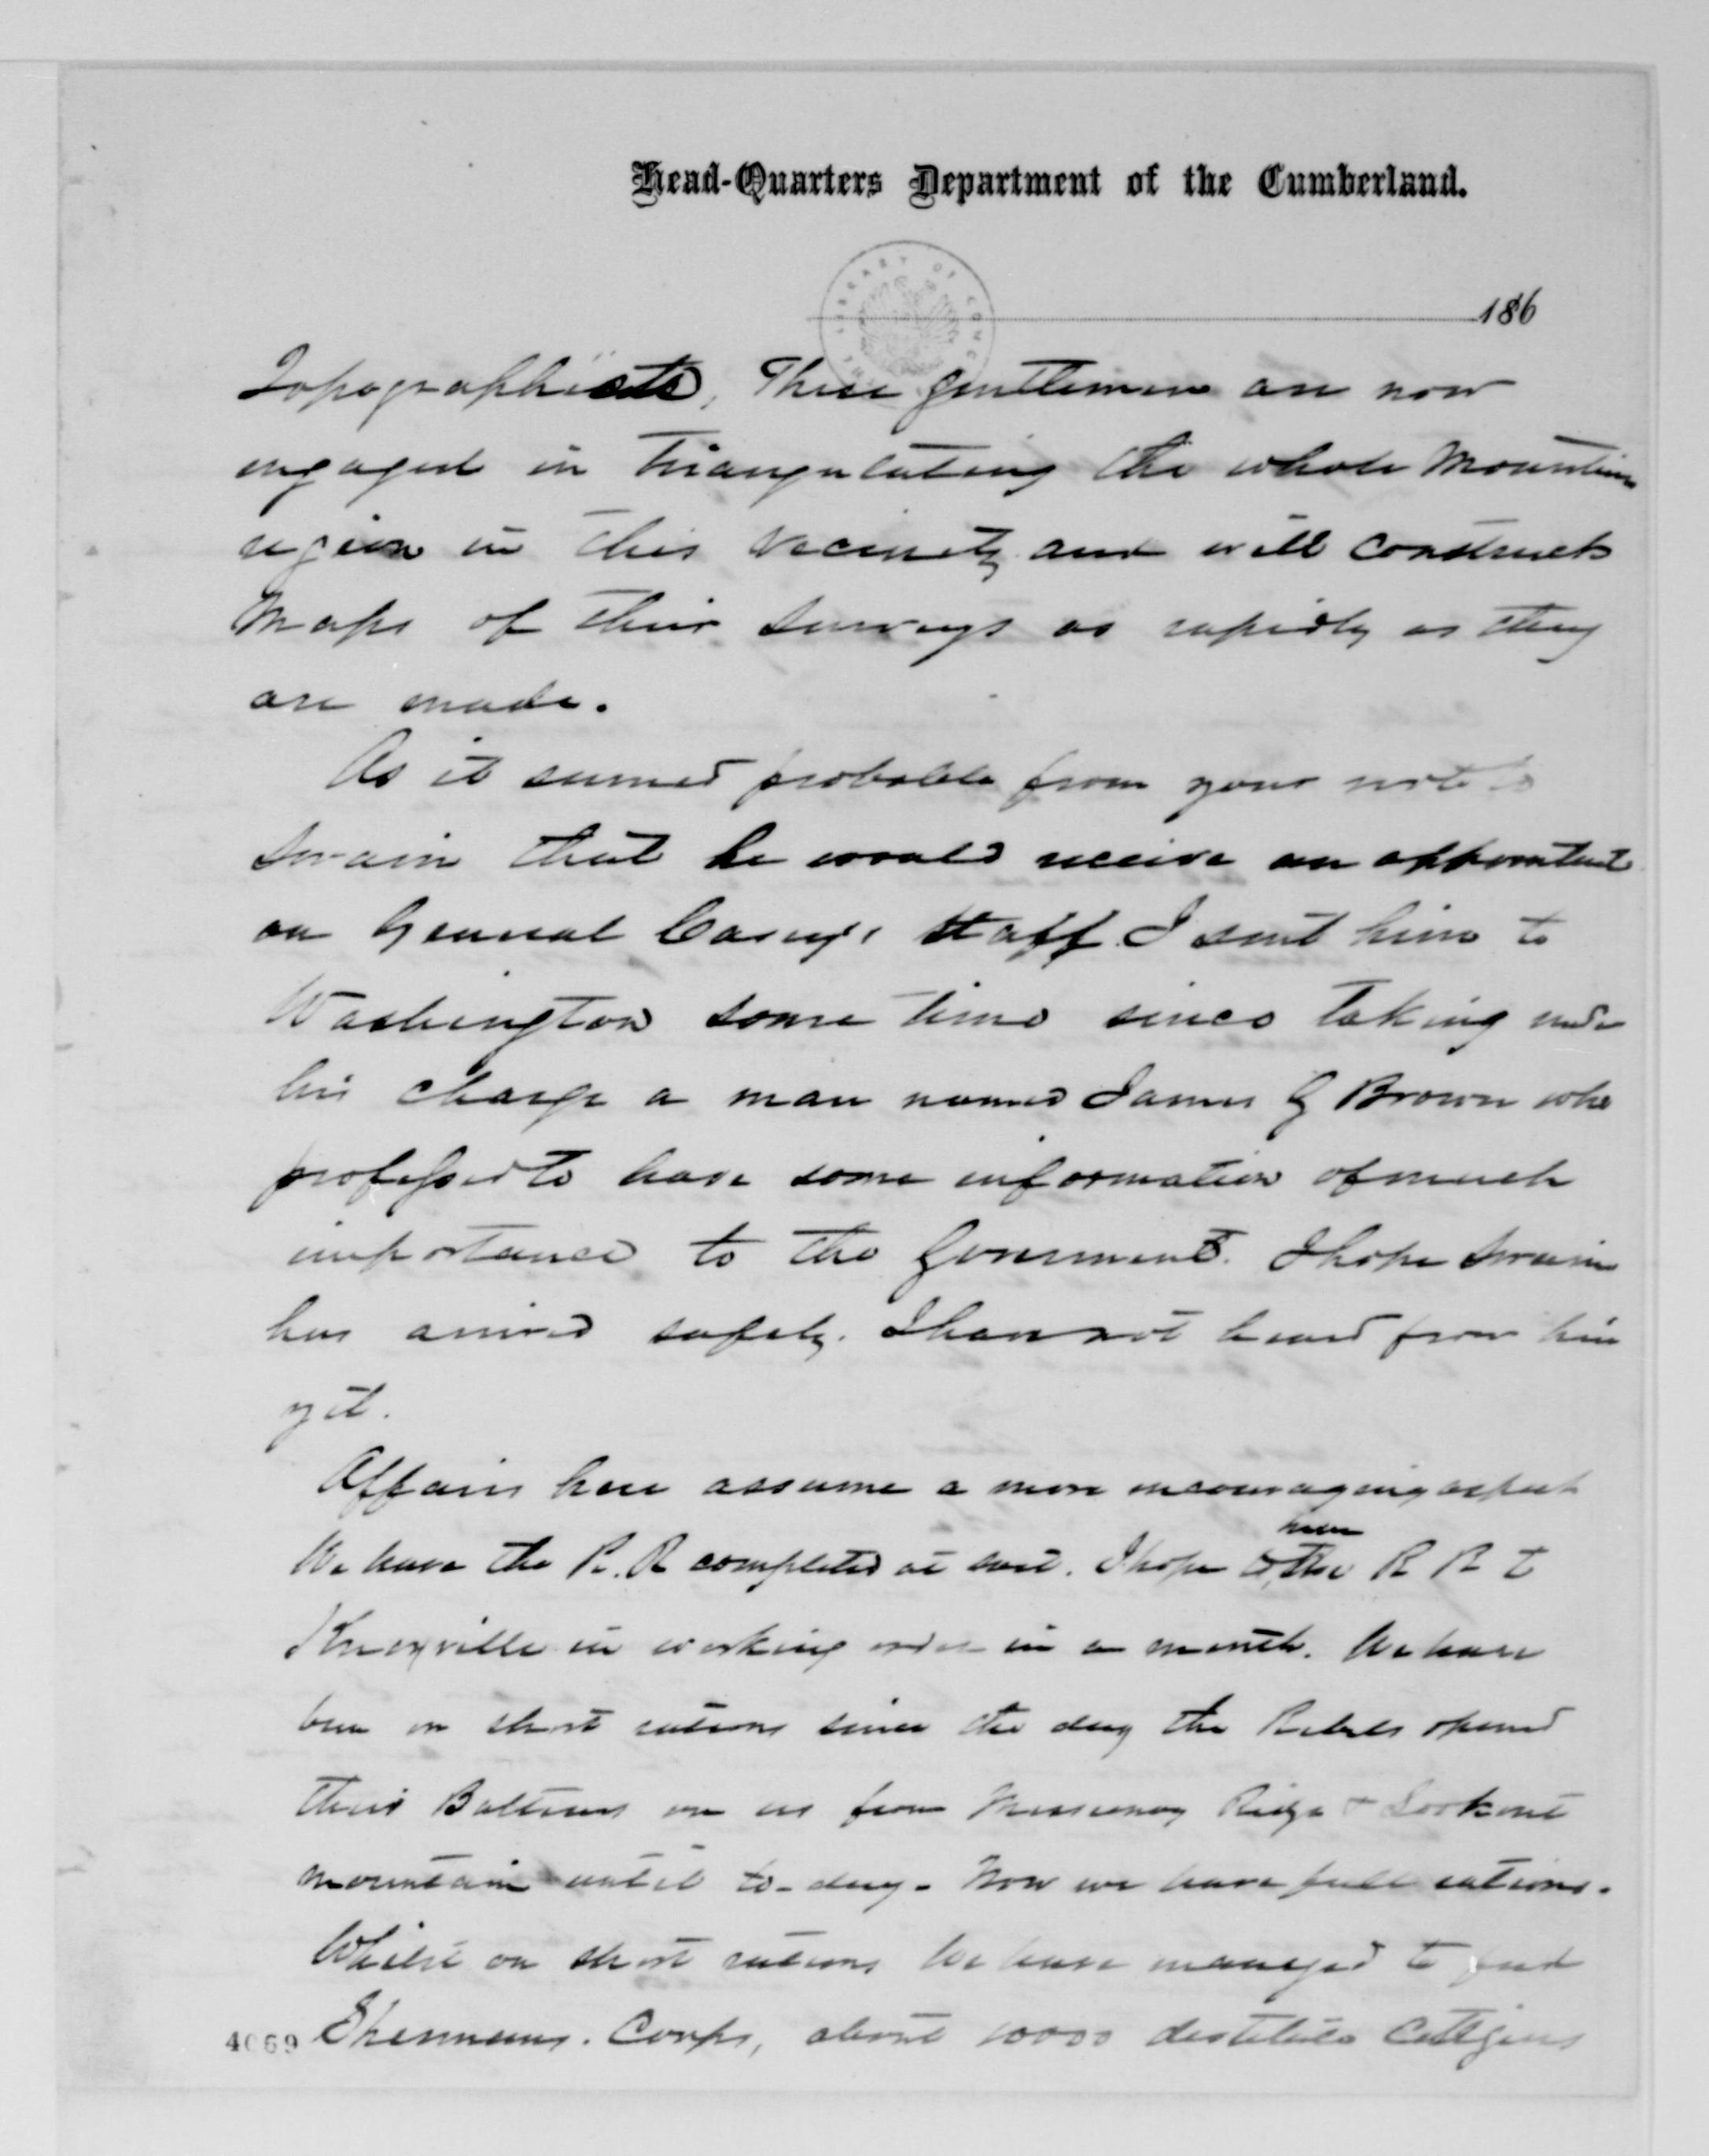 Head-Quarters Department of the Cumberland.
LIBRARY OF CONG
186
Topographists, These gentlemen are now
engaged in triangulating the whole Mountain
region in this vicinity and will construct
Maps of their surveys as rapidly as they
are made.
As it seemed probable from your note to
Swain that he would receive an appointment
on General Casey's staff I sent him to
Washington some time since taking under
his charge a man named James G Brown who
professed to have some information of much
importance to the Government. I hope Swain
has arrived safely. I have not heard from him
yet.
Affairs here assume a more encouraging aspect
We have the R. R completed at last. I hope to the R R to
have
Knoxville in working order in a month. We have
been on short rations since the day the Rebels opened
their Batteries on us from Missionary Ridge & Lookout
mountain until to-day - Now we have full rations.
Whilst on short rations we have managed to feed
4069 Shermans. Corps, about 10000 destitute Citizens